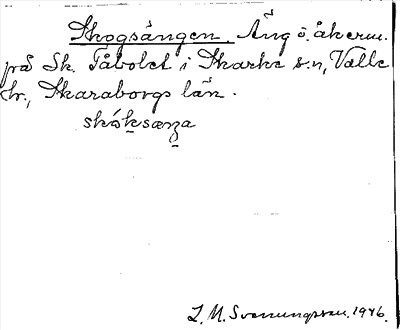 Skogsängen. Äng o. åkerm.
på Sk. Fåbolet i Skarke s:n, Valle
hr., Skaraborgs län.
skóksæŋa
L. M. Svenungsson. 1946.